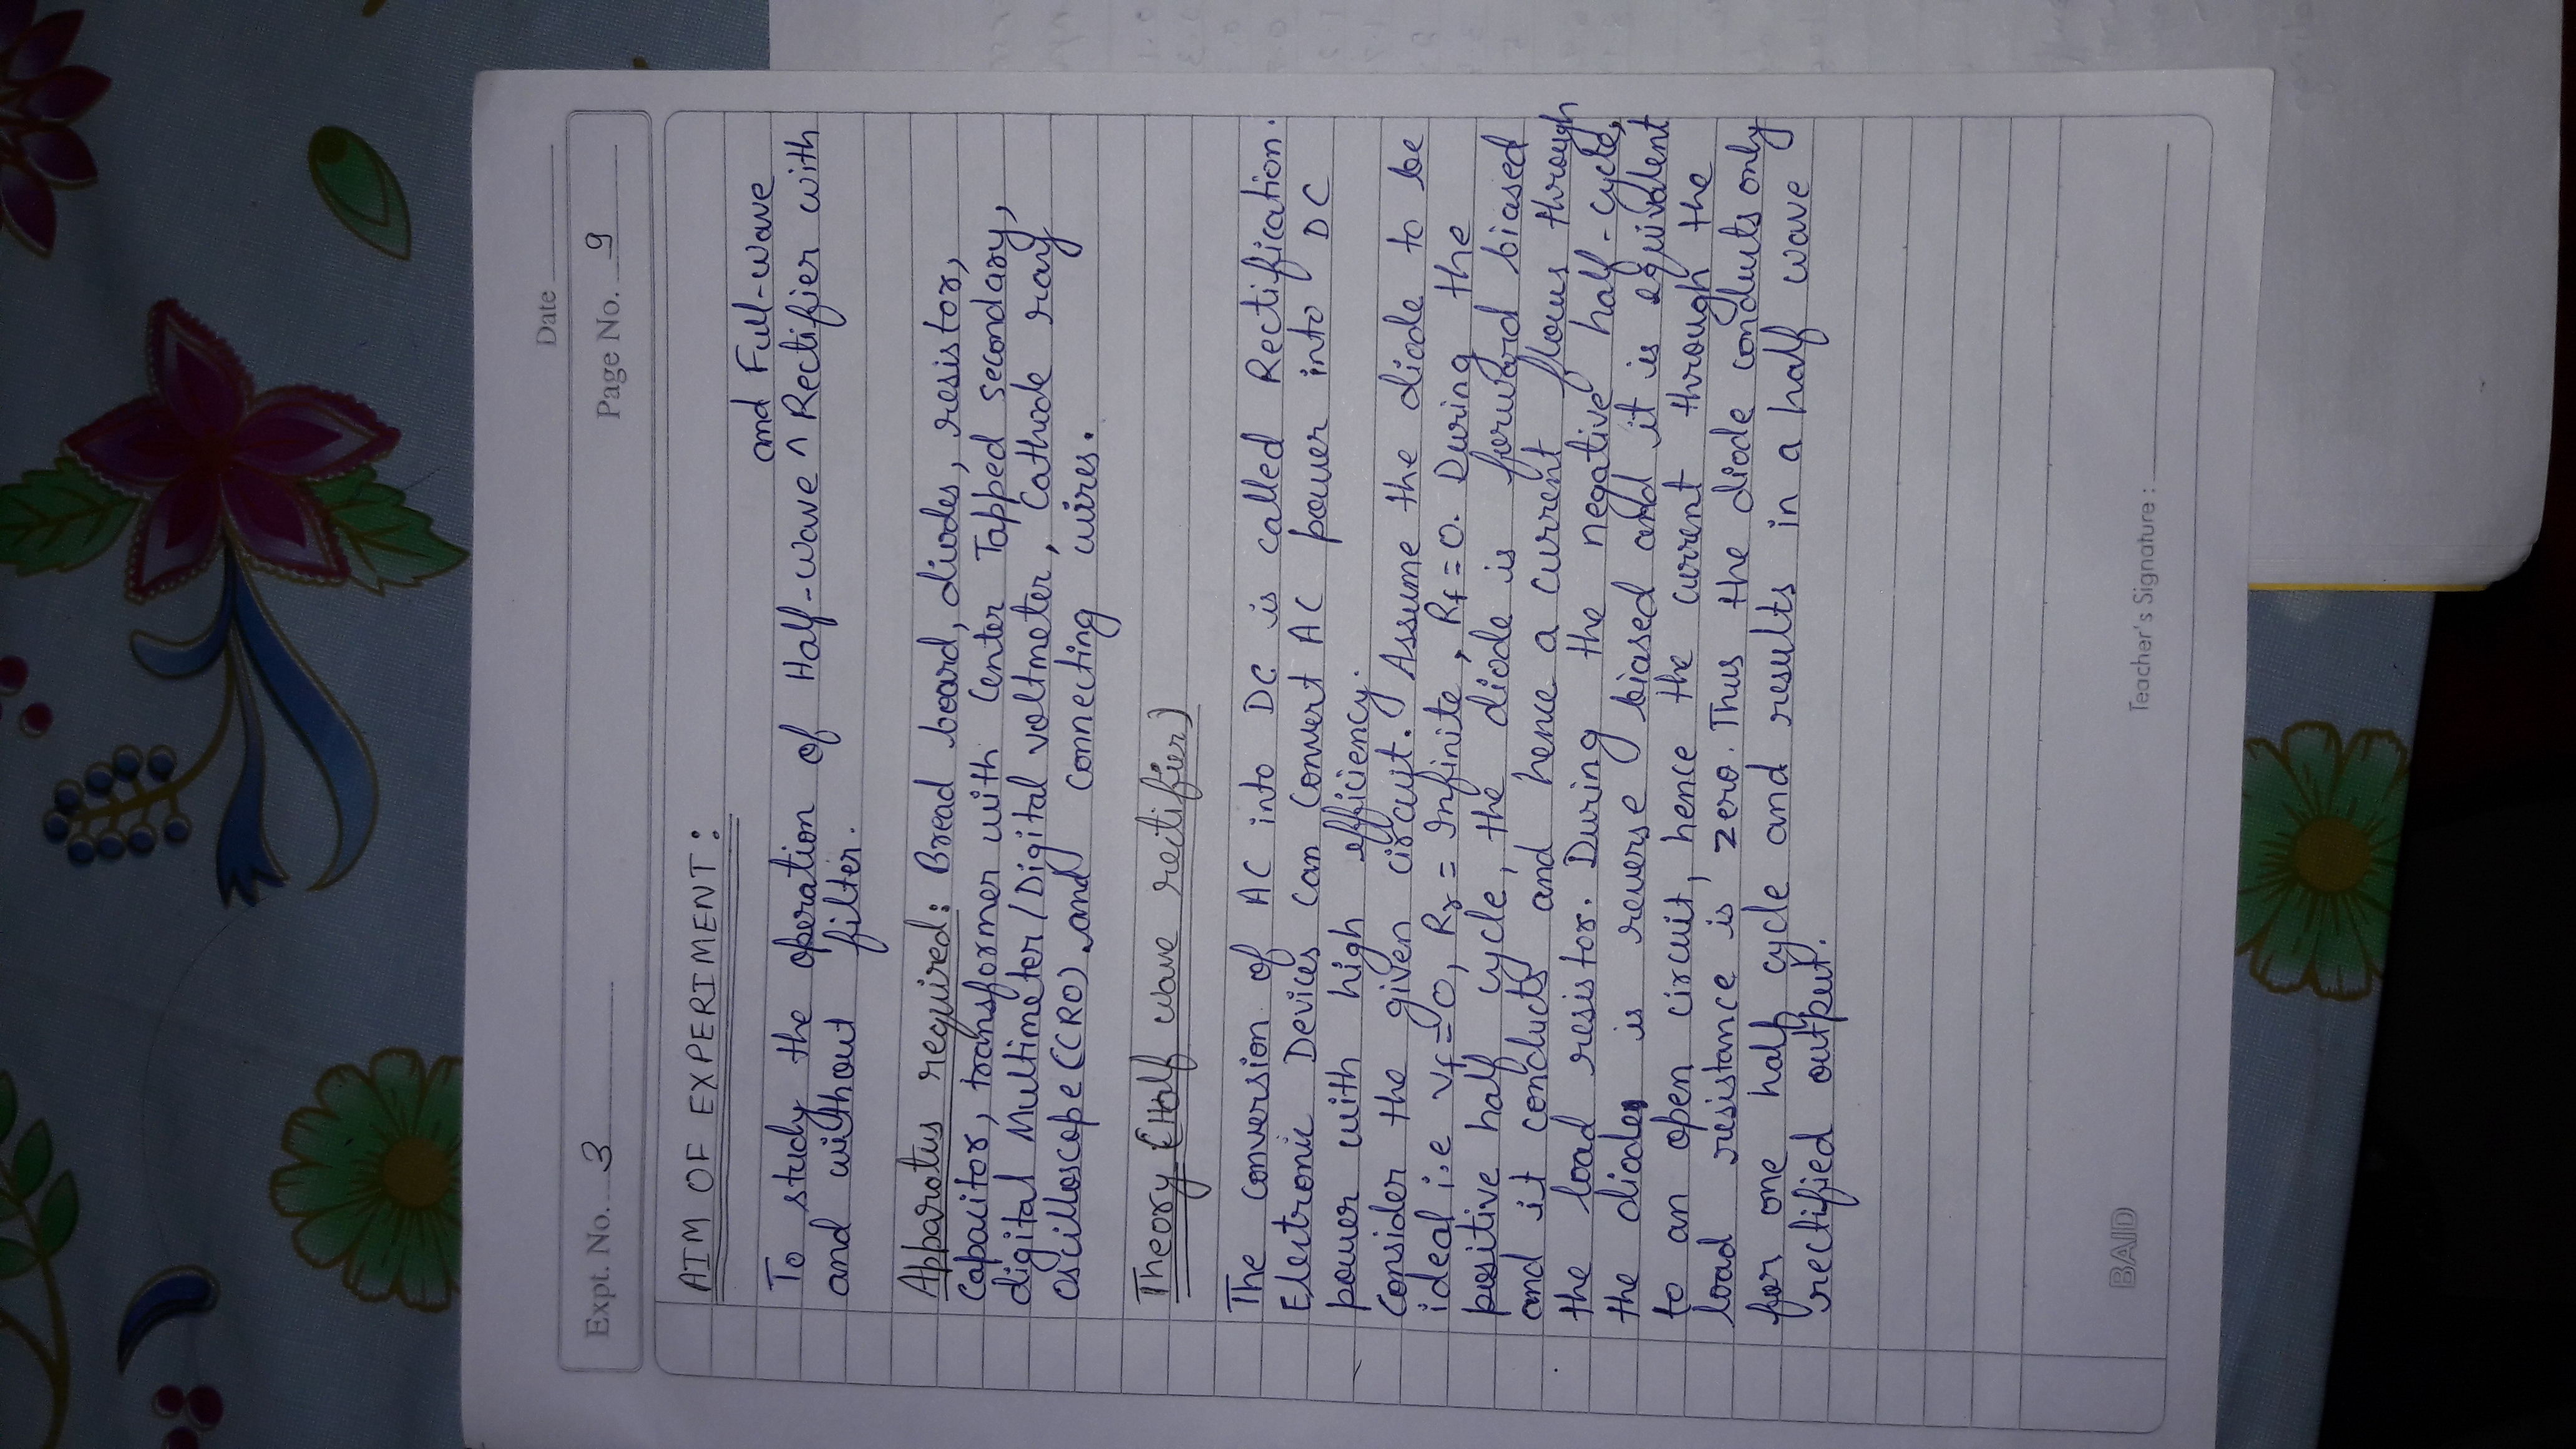 Date
Expt. No. 3
Page No. 9
AIM OF EXPERIMENT:
and Full-wave
To study the operation of Half-wave ^ Rectifier with
and without filter.
Apparatus required: Bread board, diodes, resistor,
Capacitor, transformer with Center Tapped secondary,
digital Multimeter/Digital voltmeter, Cathode ray
oscilloscope (CRO) and connecting wires.
Theory (Half wave rectifier)
The conversion of AC into DC is called Rectification.
Electronic Devices can Convert AC power into DC
power with high efficiency.
Consider the given circuit. Assume the diode to be
ideal i.e Vf=0, Rr = Infinite, Rf=0. During the
positive half cycle, the diode is forward biased
and it conducts and hence a current flows through
the load resistor. During the negative half-cycle,
the diode is reverse biased and it is equivalent
to an open circuit, hence the current through the
load resistance is zero. Thus the diode conducts only
for one half cycle and results in a half wave
rectified output.
BAID
Teacher's Signature :